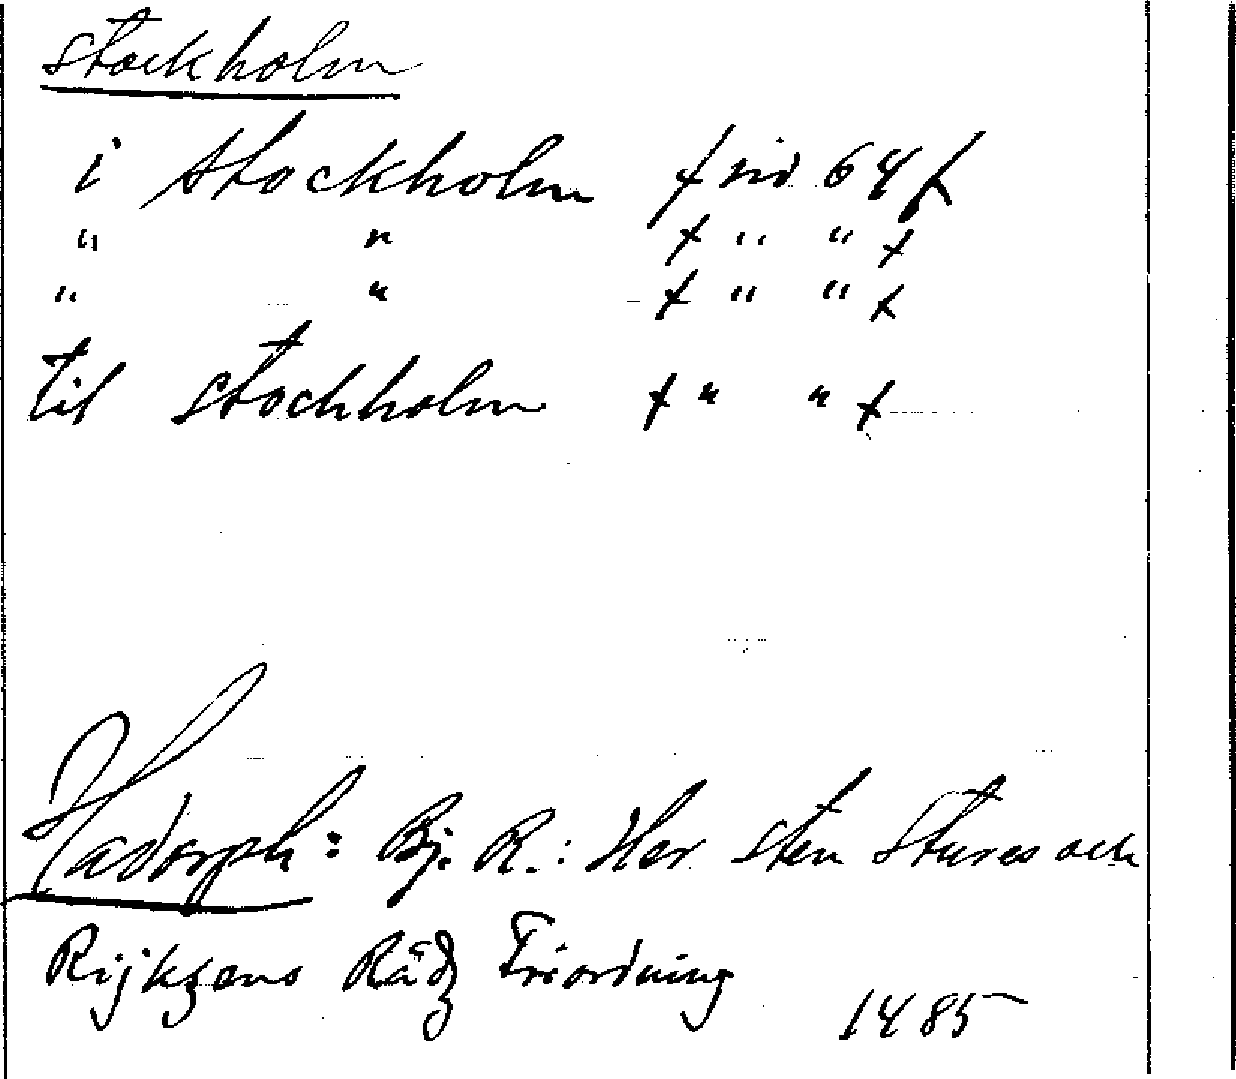 Stockholm
i Stockholm / sid 64 /
" " / " " /
" " / " " /
til Stockholm / " " /
Hadorph: Bj. R.: Her Sten Stures och
Rijkzens Rådz Friordning
1485